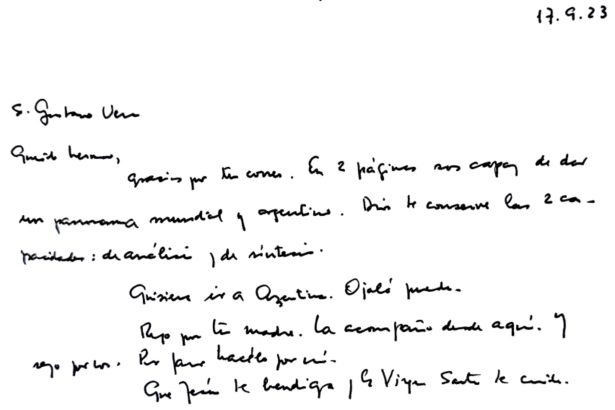 17.9.23
S. Gustavo Vera
Querido hermano,
gracias por tu correo. En 2 páginas sos capaz de dar
un panorama mundial y argentino. Dios te conserve las 2 ca-
pacidades: de análisis y de síntesis.
Quisiera ir a Argentina. Ojalá pueda.
Rezo por tu madre. La acompaño desde aquí. Y
rezo por vos. Por favor hacelo por mí.
Que Jesús te bendiga y la Virgen Santa te cuide.